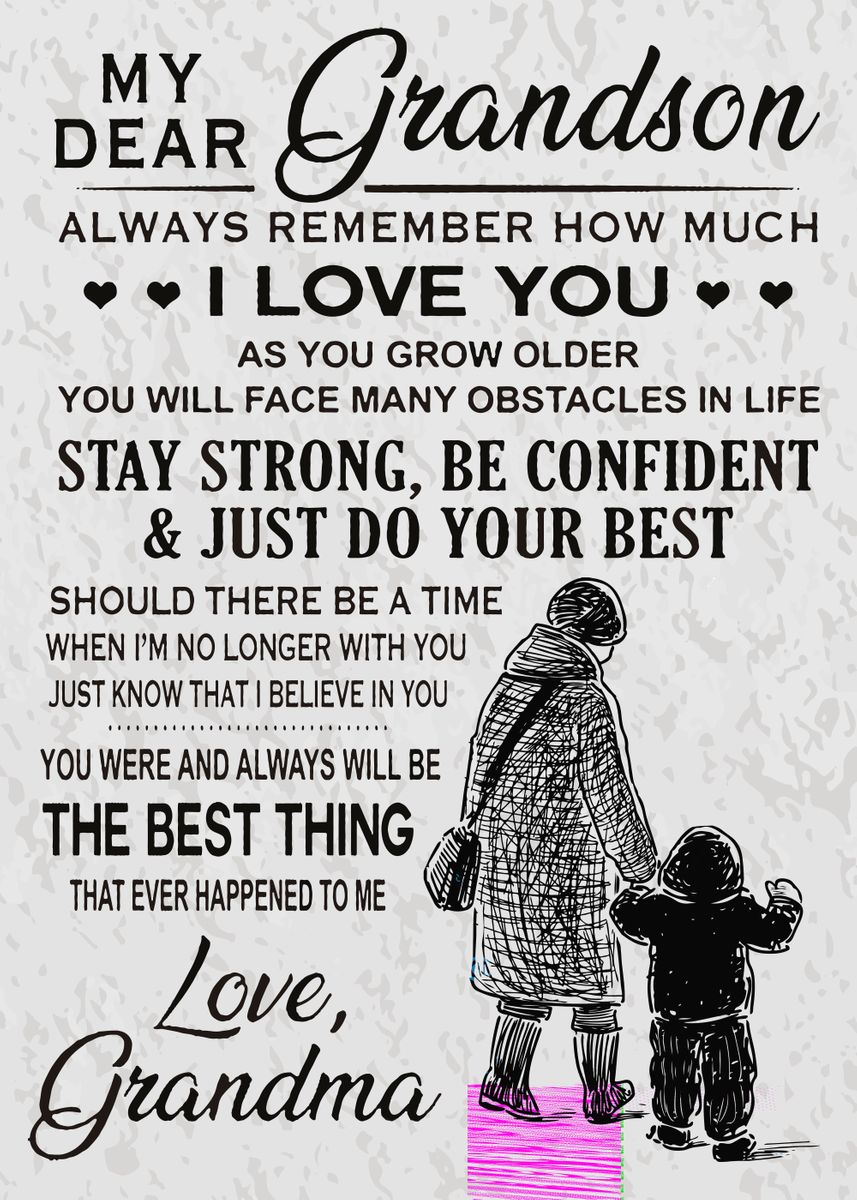 MY
DEAR Grandson
ALWAYS REMEMBER HOW MUCH
I LOVE YOU
AS YOU GROW OLDER
YOU WILL FACE MANY OBSTACLES IN LIFE
STAY STRONG, BE CONFIDENT
& JUST DO YOUR BEST
SHOULD THERE BE A TIME
WHEN I'M NO LONGER WITH YOU
JUST KNOW THAT I BELIEVE IN YOU
YOU WERE AND ALWAYS WILL BE
THE BEST THING
THAT EVER HAPPENED TO ME
Love,
Grandma